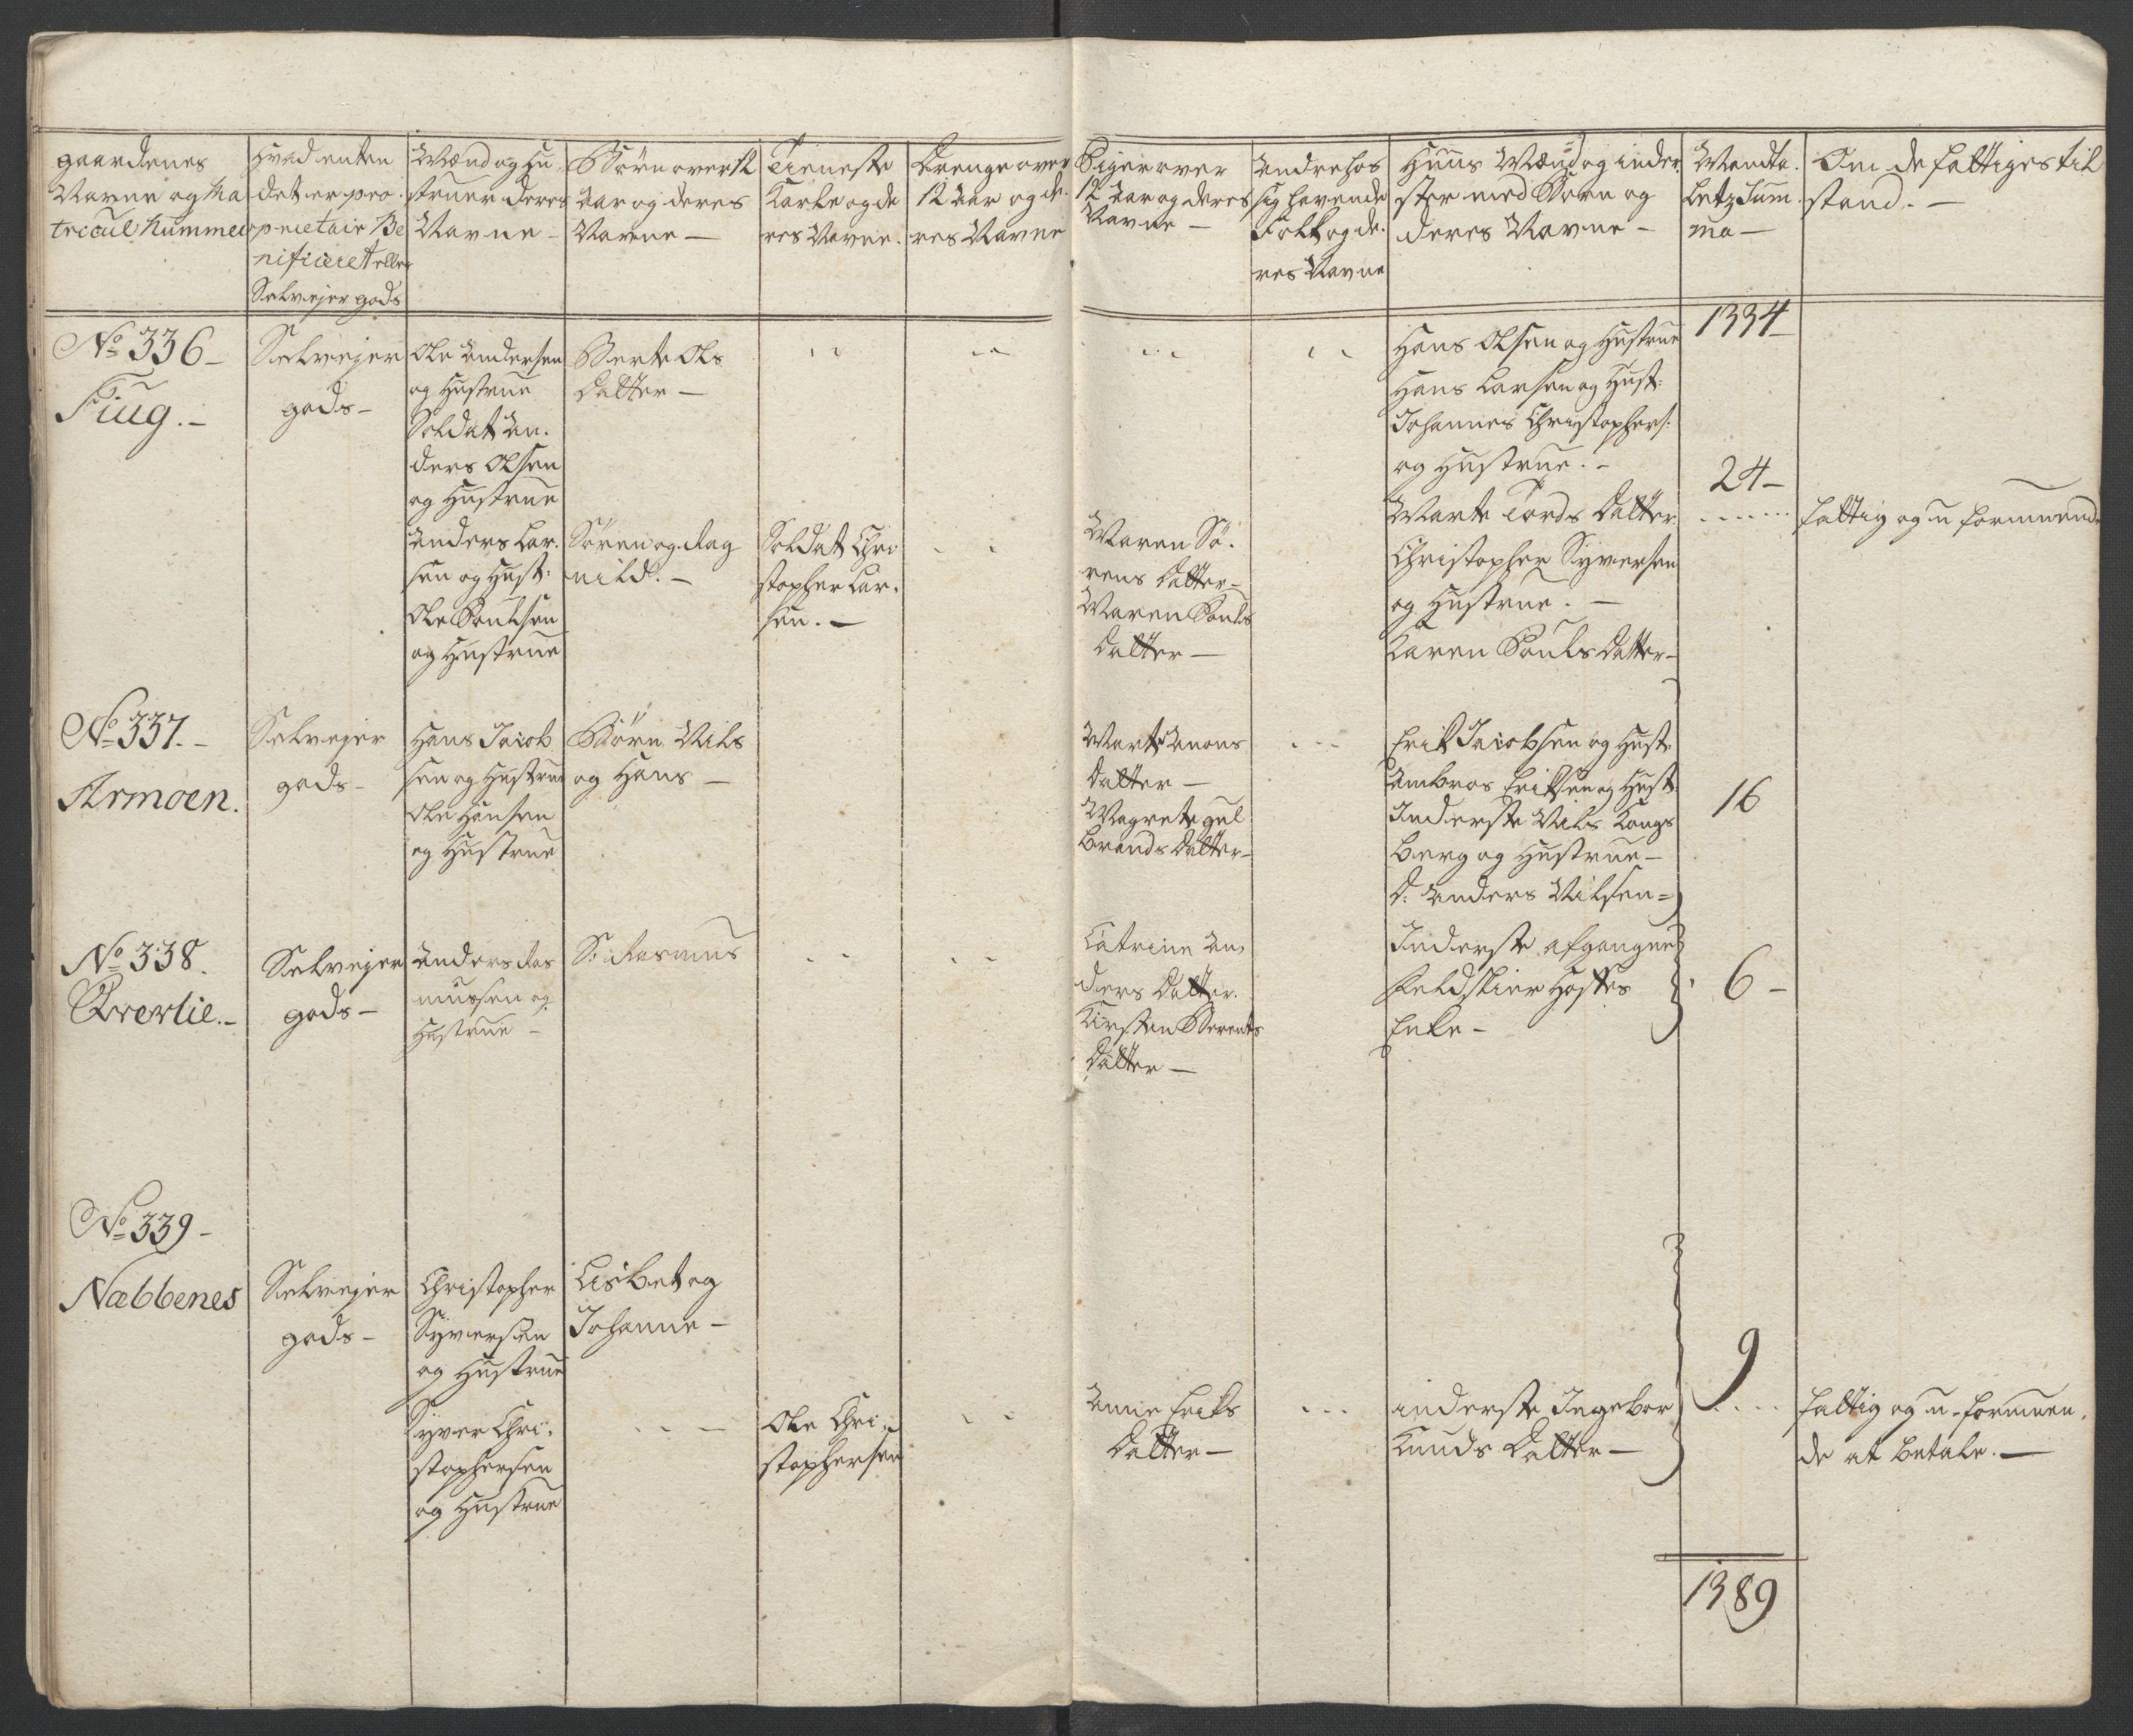 gaardenes
Navne og Ma
tricul Nummer
Hvad enten
det er pro.
prietair Be
nificeret eller
Selvejer gods
Mænd og Hu
struer deres
Navne -
Børn over 12
Aar og deres
Navne -
Tieneste
Karle og de
res Navne.
Drenge over
12 Aar og de.
res Navne
Piger over
12 Aar og deres
Navne -
Andre hos
sig havende
Folk og de.
res Navne
Huus Mænd og inder
ster med Børn og
deres Navne -
Mandta.
letz Sum.
ma -
Om de fattiges til
stand. -
1334
No 336 -
Fiug. -
Selvejer
gods -
Ole Andersen
og Hustrue
Soldat An.
ders Olsen
og Hustrue
Anders Lar.
sen og Hust:
Ole Poulsen
og Hustrue
Berte Ols
Datter -
Søren og Rag
nild. -
Soldat Chri
stopher Lar.
sen. -
Maren Sø.
rens Datter -
Maren Pouls
Datter -
Hans Olsen og Hustrue
Hans Larsen og Hust:
Johannes Christophers:
og Hustrue. -
Marte Tords Datter
Christopher Syversen
og Hustrue. -
Karen Pouls Datter -
24 -
fattig og u formuende
No 337. -
Armoen.
Selvejer
gods -
Hans Jacob
sen og Hustrue
Ole Hansen
og Hustrue
Børn Nils
og Hans -
Marte Anons
Datter -
Magrete gul
brands Datter -
Erik Jacobsen og Hust.
Ambros Eriksen og Hust.
Inderste Nils Kongs
berg og Hustrue -
D: Anders Nilsen =
16
No 338.
Qverlie. -
Selvejer
gods -
Anders Ras
mussen og
Hustrue -
S: Rasmus
Catrine An,
ders Datter.
Kirsten Berents
Datter -
Inderste afgangne
Feldskier Hoffes
Enke -
6 -
No 339 -
Næbbenes
Selvejer
gods -
Christopher
Syversen
og Hustrue
Syver Chri.
stophersen
og Hustrue
Lisbet og
Johanne -
Ole Chri.
stophersen
Anne Eriks
Datter -
inderste Ingebor
Knuds Datter -
9
fattig og u-formuen.
de at betale. -
1389